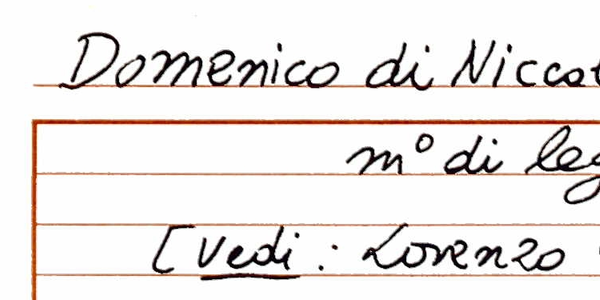 Domenico di Niccol
m° di leg
[Vedi: Lorenzo